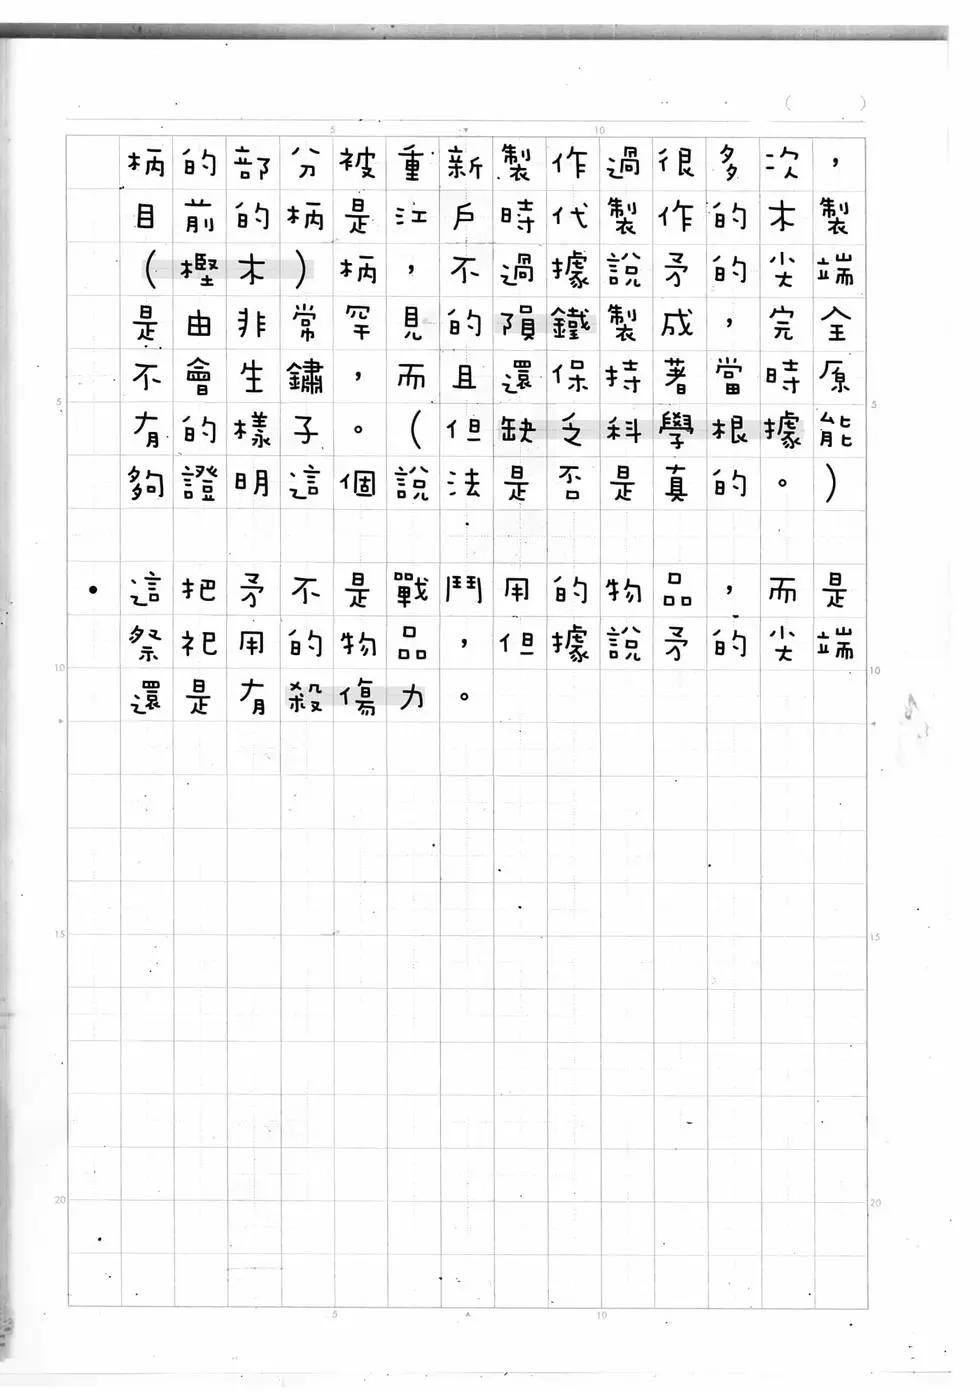 ( )
5 10
柄的部分被重新製作過很多次，
目前的柄是江戶時代製作的木製
（樫木）柄，不過據說矛的尖端
是由非常罕見的隕鐵製成，完全
不會生鏽，而且還保持著當時原
5 5
有的樣子。（但缺乏科學根據能
夠證明這個說法是否是真的。）
• 這把矛不是戰鬥用的物品，而是
祭祀用的物品，但據說矛的尖端
10 10
還是有殺傷力。
15 15
20 20
5 10